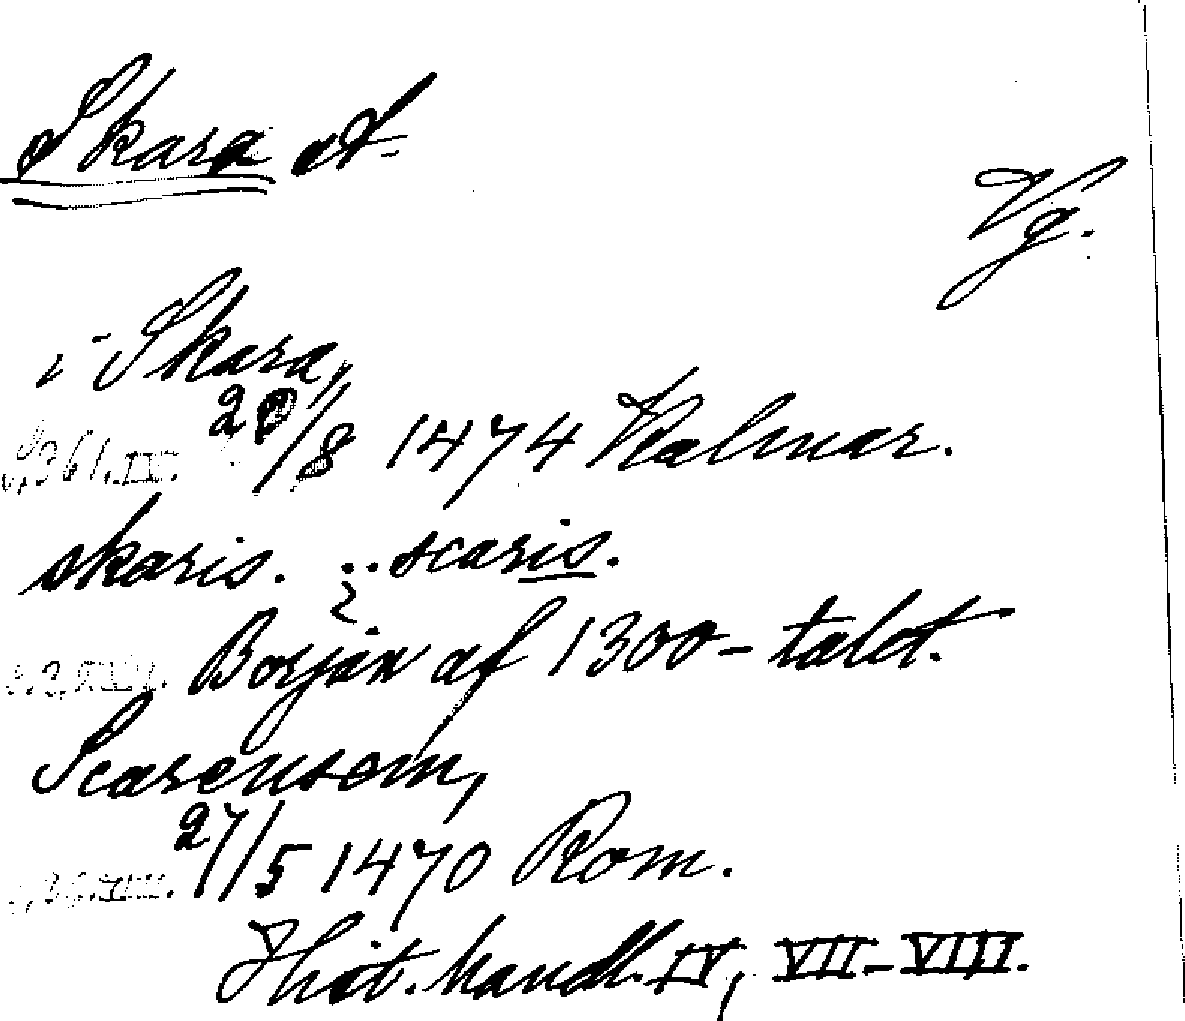 Skara st.
Vg.
i Skara,
s. 361. IV. 20/8 1474 Kalmar.
skaris. .. scaris.
Början af 1300-talet.
Scarensem,
27/5 1470 Rom.
Hist. handl. IV, VII-VIII.